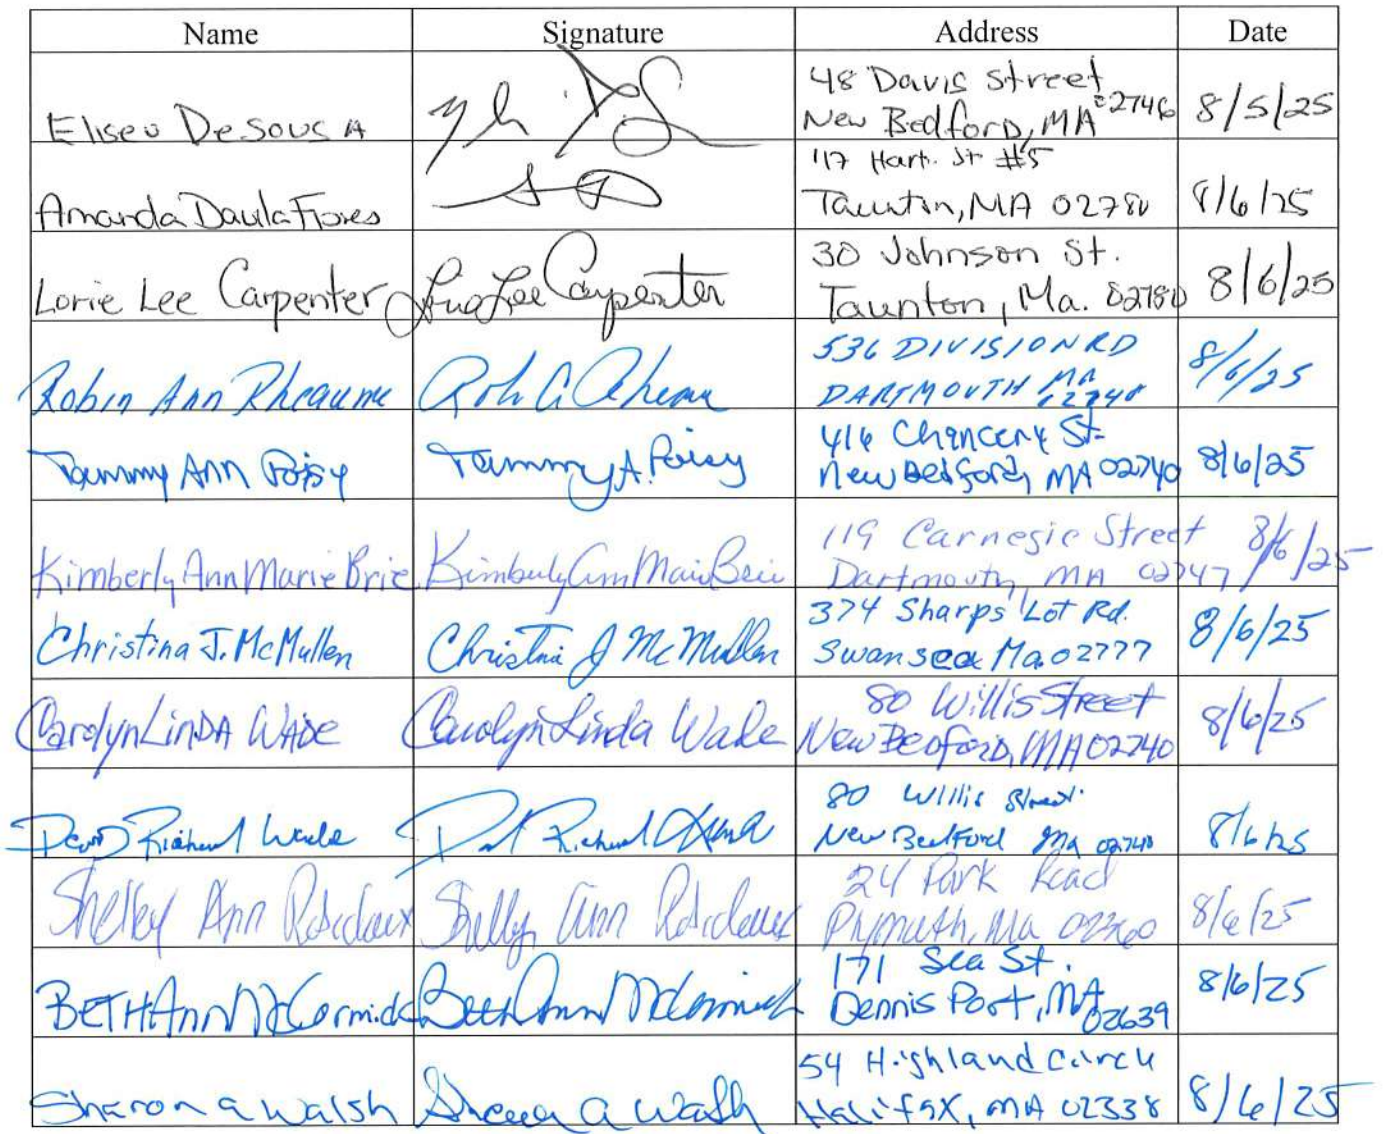 Name Signature Address Date
Eliseo DeSousa 48 Davis Street
New Bedford, MA 02746 8/5/25
Amanda Davila Flores 117 Hart St #5
Taunton, MA 02780 8/6/25
Lorie Lee Carpenter Lorie Lee Carpenter 30 Johnson St.
Taunton, Ma. 02780 8/6/25
Robin Ann Rheaume 536 DIVISION RD
DARTMOUTH MA 8/6/25
Tammy Ann Poisy Tammy A. Poisy 416 Chancery St.
New Bedford, MA 02740 8/6/25
Kimberly Ann Marie Brie Kimberly Ann Marie Brie 119 Carnegie Street
Dartmouth, MA 02747 8/6/25
Christina J. McMullen Christina J McMullen 374 Sharps Lot Rd.
Swansea Ma. 02777 8/6/25
Carolyn LinDA WADE Carolyn Linda Wade 80 Willis Street
New Bedford, MA 02740 8/6/25
David Richard Wade 80 Willis Street
New Bedford Ma 02740 8/6/25
Shelley Ann Shelley Ann 24 Park Road
Plymouth, Ma 02360 8/6/25
BETH Ann McCormick Beth Ann McCormick 171 Sea St.
Dennis Port, MA 02639 8/6/25
Sharon a Walsh Sharon a Walsh 54 Highland Circle
Halifax, MA 02338 8/6/25